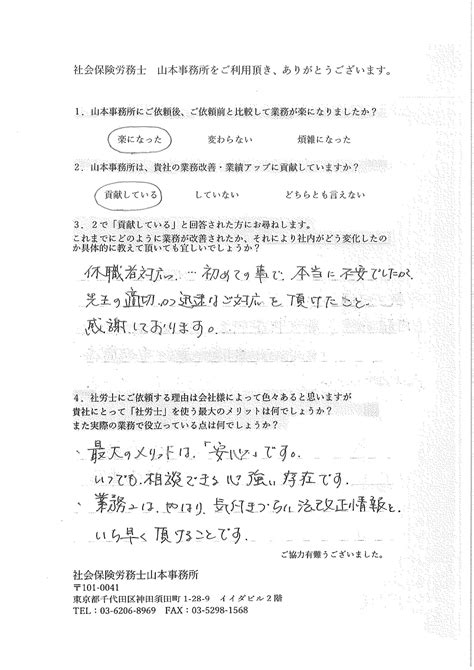 社会保険労務士　山本事務所をご利用頂き、ありがとうございます。
1．山本事務所にご依頼後、ご依頼前と比較して業務が楽になりましたか？
楽になった　変わらない　煩雑になった
2．山本事務所は、貴社の業務改善・業績アップに貢献していますか？
貢献している　していない　どちらとも言えない
3．2で「貢献している」と回答された方にお尋ねします。
これまでにどのように業務が改善されたか、それにより社内がどう変化したの
か具体的に教えて頂いても宜しいでしょうか？
休職者対応…初めての事で、本当に不安でしたが、
先生の適切かつ迅速なご対応を頂けたこと、
感謝しております。
4．社労士にご依頼する理由は会社様によって色々あると思いますが
貴社にとって「社労士」を使う最大のメリットは何でしょうか？
また実際の業務で役立っている点は何でしょうか？
・最大のメリットは、「安心」です。
いつでも相談できる心強い存在です。
・業務上は、やはり、気付きづらい法改正情報を、
いち早く頂けることです。
ご協力有難うございました。
社会保険労務士山本事務所
〒101-0041
東京都千代田区神田須田町 1-28-9　イイダビル2階
TEL：03-6206-8969　FAX：03-5298-1568